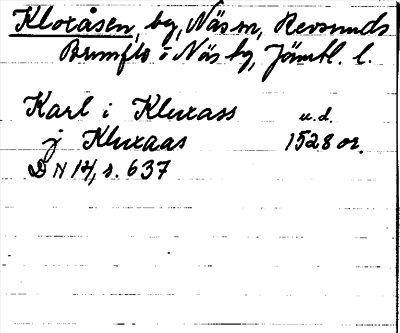 Kloxåsen, by, Näs sn, Revsunds
Brunflo o Näs tg, Jämtl. l.
Karl i Kluxass u.d.
j Kluxaas 1528 or.
DN 14, s. 637